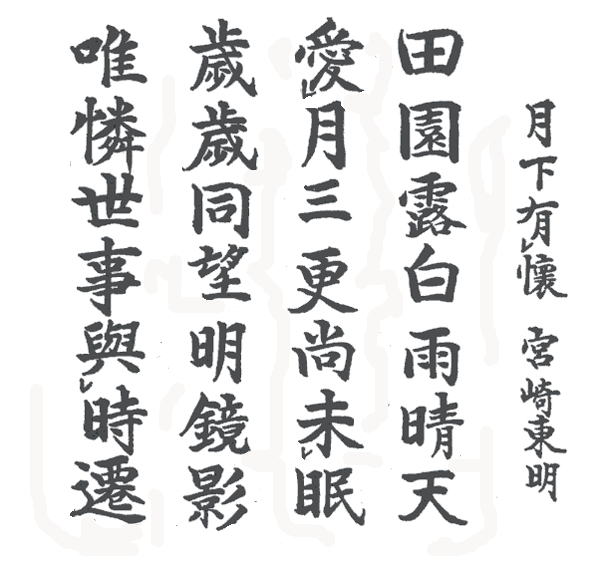 月下有レ懐 宮崎東明
田園露白雨晴天
愛レ月三更尚未レ眠
歳歳同望明鏡影
唯憐世事與レ時遷